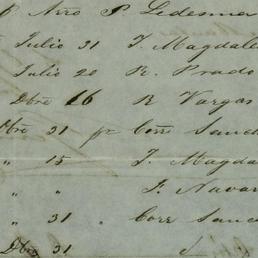 Arro P. Ledesma
Julio 31 J. Magdale
Julio 20 R. Prado
Dbre 16 R Vargas
Dbre 31 pr Corr Sanc
" 15 J. Magda
" " J. Navar
" 31 " Corr Sanc
Dbre 31